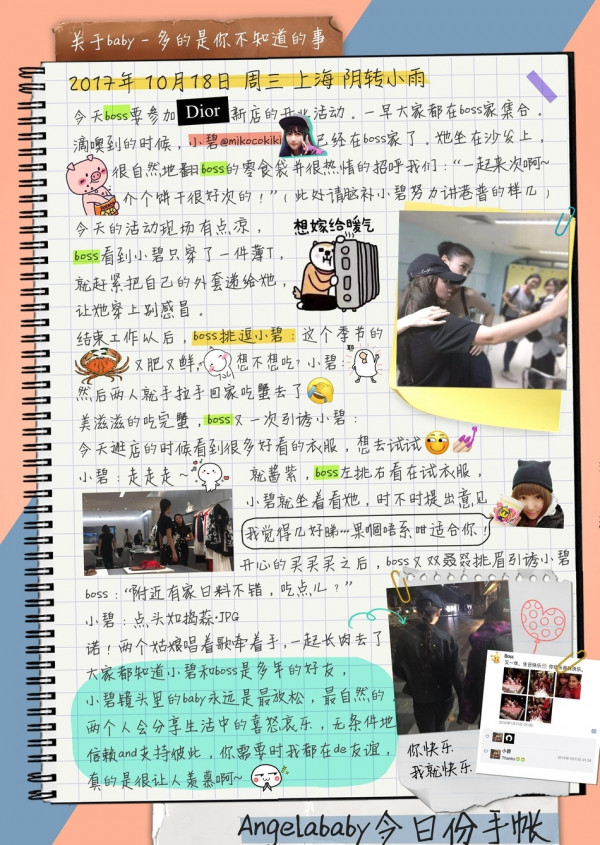 关于baby-多的是你不知道的事
2017年10月18日 周三 上海 阴转小雨
今天boss要参加 Dior 新店的开业活动。一早大家都在boss家集合。
滴噢到的时候，小碧@mikocokiki 已经在boss家了。她坐在沙发上，
很自然地翻boss的零食袋并很热情的招呼我们：“一起来次啊~
介个饼干很好次的！”（此处请脑补小碧努力讲港普的样儿）
今天的活动现场有点凉，
想嫁给暖气
boss看到小碧只穿了一件薄T，
就赶紧把自己的外套递给她，
让她穿上别感冒。
结束工作以后，boss挑逗小碧：这个季节的
又肥又鲜，想不想吃？小碧：
然后两人就手拉手回家吃蟹去了
美滋滋的吃完蟹，boss又一次引诱小碧：
今天逛店的时候看到很多好看的衣服，想去试试
小碧：走走走~
就酱紫，boss左挑右看在试衣服，
小碧就坐着看她，时不时提出意见
我觉得几好睇…果嗰唔系咁适合你！
开心的买买买之后，boss又双叒叕挑眉引诱小碧
boss：“附近有家日料不错，吃点儿？”
小碧：点头如捣蒜.JPG
诺！两个姑娘唱着歌牵着手，一起长肉去了
大家都知道小碧和boss是多年的好友，
小碧镜头里的baby永远是最放松，最自然的。
两个人会分享生活中的喜怒哀乐，无条件地
信赖and支持彼此，你需要时我都在de友谊，
真的是很让人羡慕啊~
Boss
小碧
Thanks
你快乐
我就快乐
Angelababy今日份手帐